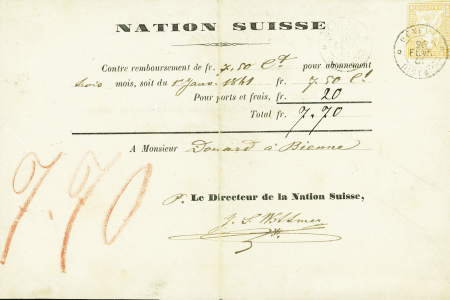 NATION SUISSE
Contre remboursement de fr. 7.50 Ct pour abonnement
trois mois, soit du 1er Janv. 1861 fr. 7.50 Ct
Pour ports et frais, fr. 20
Total fr. 7.70
A Monsieur Douard à Bienne
7.70
P. Le Directeur de la Nation Suisse,
GENÈVE